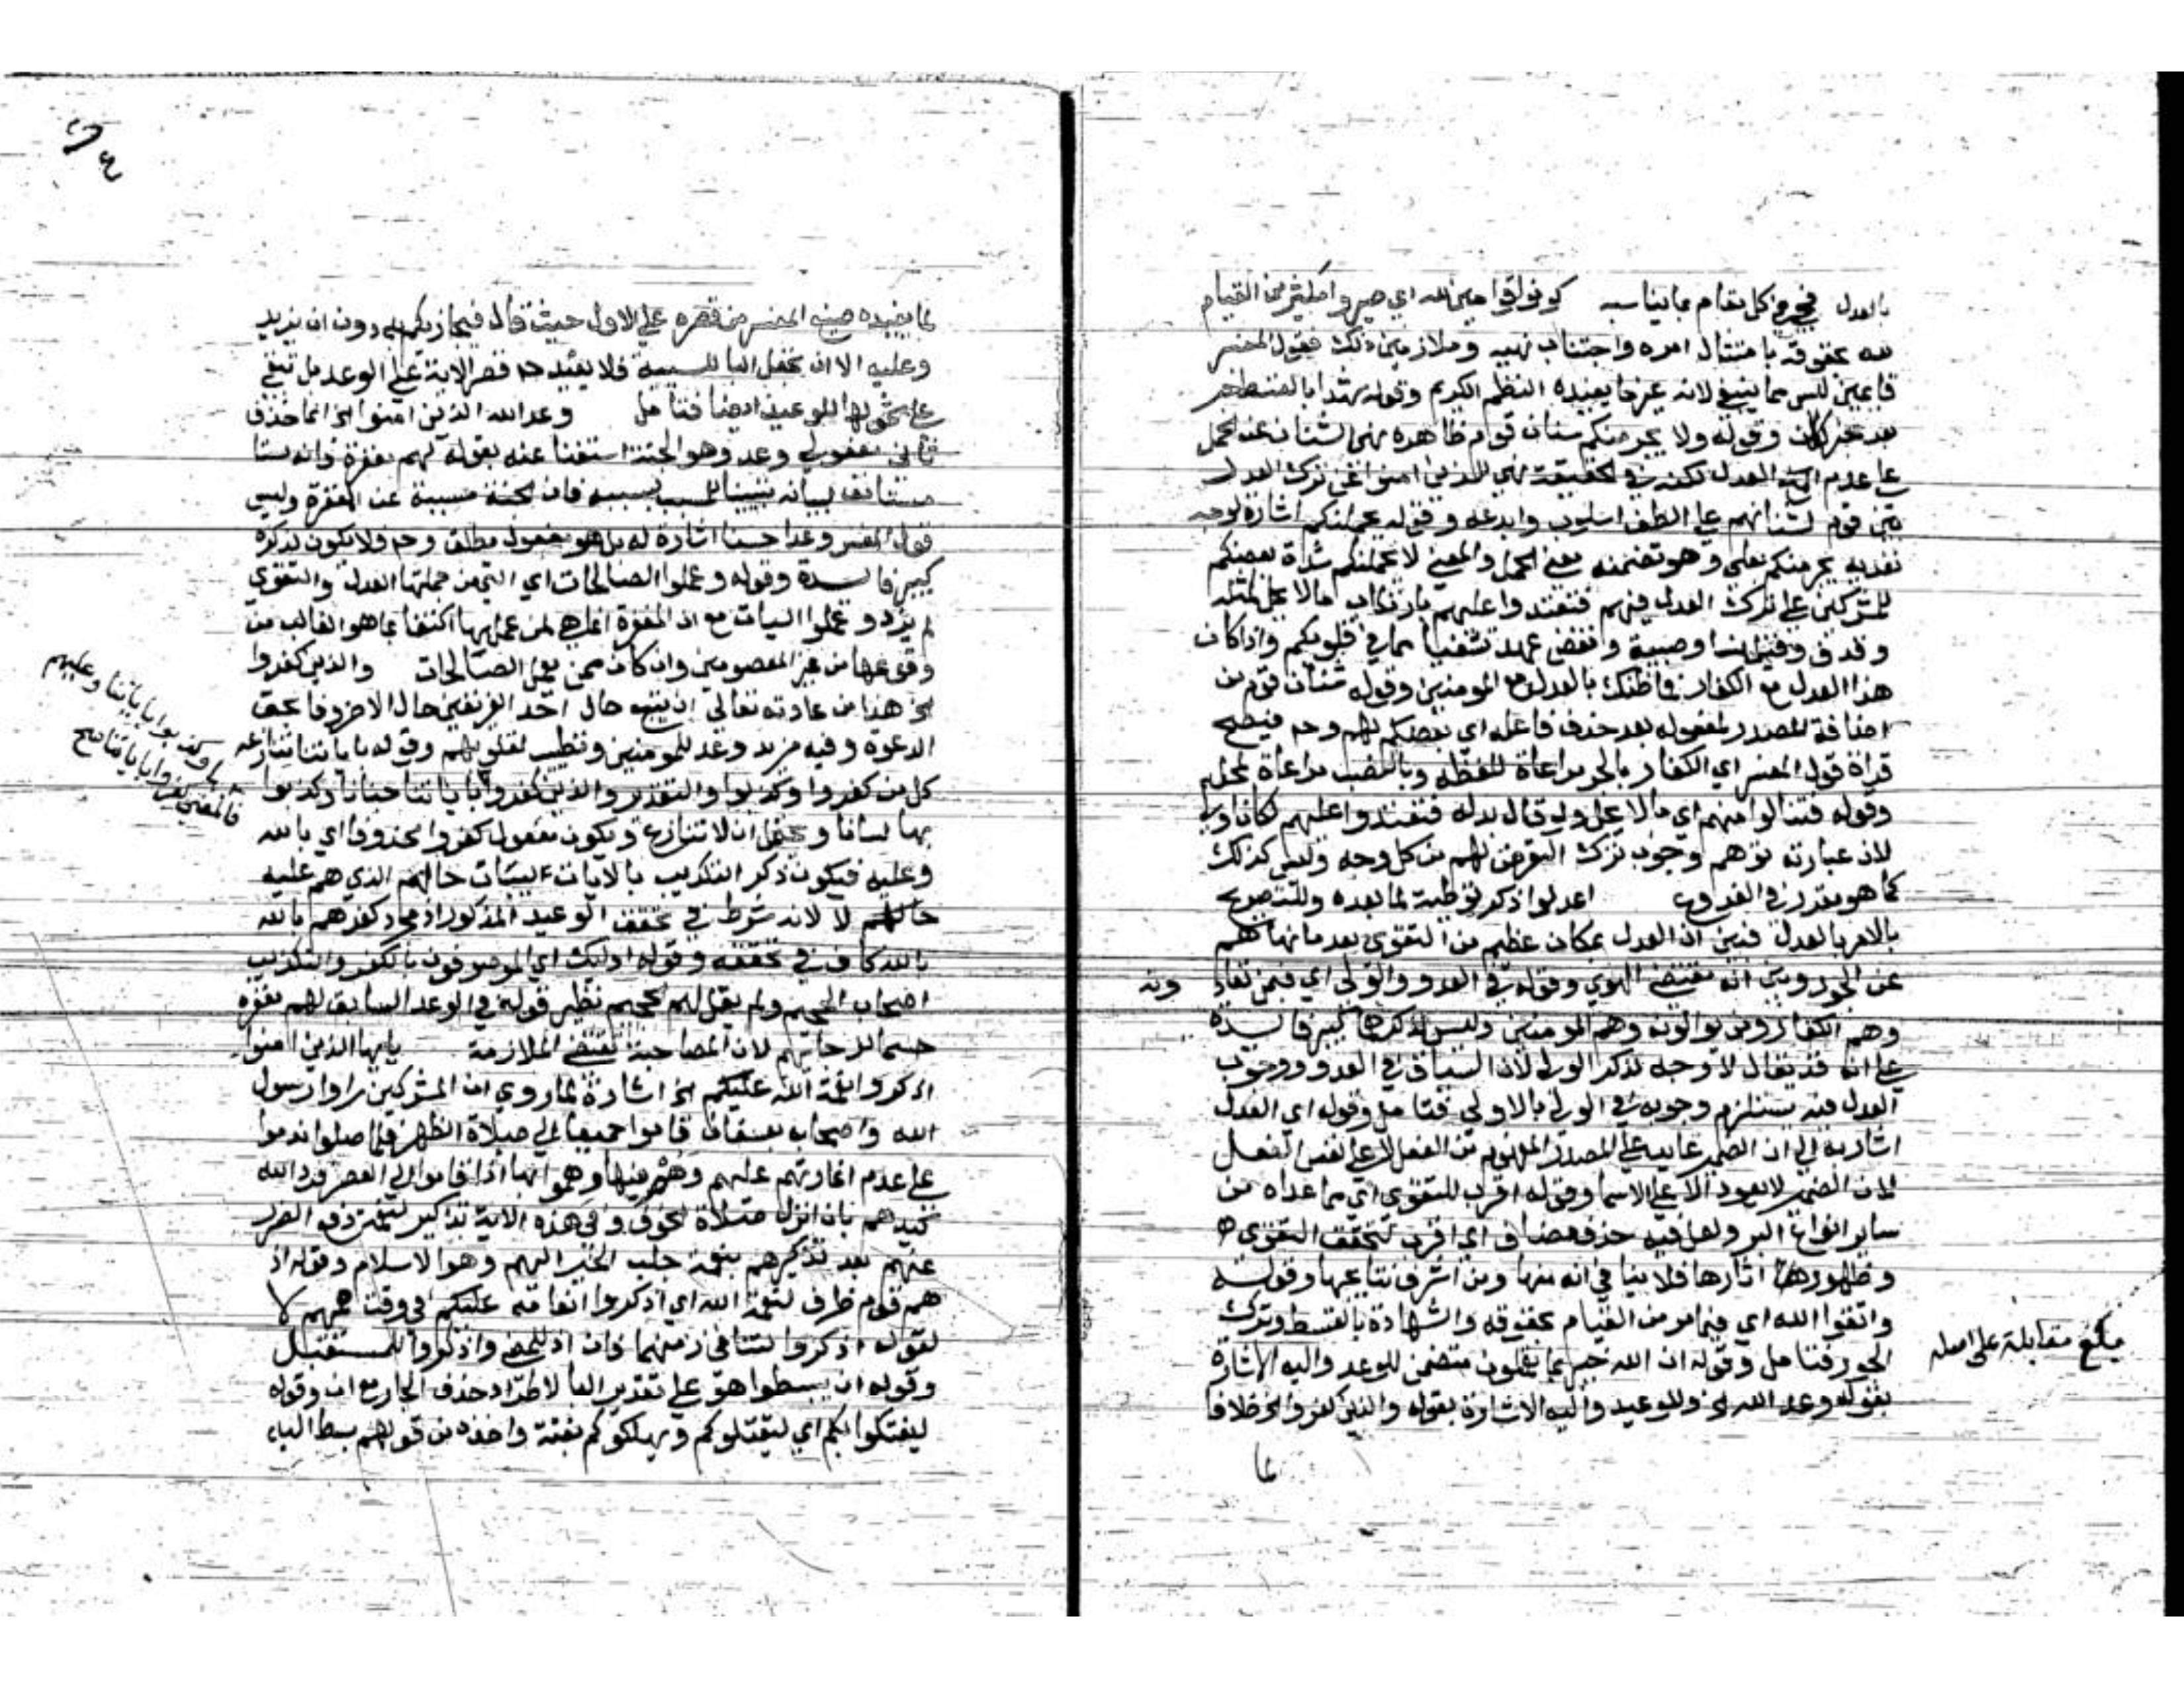 بالعدل فيخرج كل مقام بما يناسبه كونوا قوامين لله اي صيروا مكثرين القيام
لله بحقوقه بامتثال امره واجتناب نهيه وملازمين ذلك فقول المفسر
قايمين ليس مما ينبغي لانه غير ما يفيده النظم الكريم وقوله شهدا بالقسط خبر
بعد خبر لكان وقوله ولا يجرمنكم شنان قوم ظاهره نهي الشنان عن الحمل
على عدم العدل لكنه في الحقيقة نهي للذين امنوا عن ترك العدل
بين قوم لشنانهم على الطف اسلوب وابدعه وقوله يحملنكم اشارة لوجه
تعديه يجرمنكم بعلى وهو تضمنه معنى الحمل والمعنى لا يحملنكم شدة بغضكم
للمشركين على ترك العدل فيهم فتعتدوا عليهم بارتكاب ما لا يحل كمثله
وقذف وقتل نسا وصبية ونقض عهد تشفيا مما في قلوبكم واذا كان
هذا العدل مع الكفار فما ظنك بالعدل مع المومنين وقوله شنان قوم من
اضافة المصدر لمفعوله بعد حذف فاعله اي بغضكم لهم وح فيصح
قراة قول المفسر اي الكفار بالجر مراعاة للفظه وبالنصب مراعاة لمحله
وقوله فتنالوا منهم اي ما لا يحل ولو قال بدله فتعتدوا عليهم لكان اولى
لان عبارته توهم وجوب ترك التعرض لهم من كل وجه وليس كذلك
كما هو مقرر في الفروع اعدلوا ذكر توطية لما بعده وللتصريح
بالامر بالعدل فبين ان العدل بمكان عظيم من التقوى بعد ما نهاهم
عن الجور وبين انه مقتضى الهوي وقوله في العدو والولي اي فيمن تعاد ونه
وهم الكفار ومن توالونه وهم المومنين وليس لذكرها كبير فايدة
على انه قد يقال لا وجه لذكر الولي لان السياق في العدو ووجوب
العدل فيه يستلزم وجوبه في الولي بالاولى فتامل وقوله اي العدل
اشار به الى ان الضمير عايد على المصدر المفهوم من الفعل لا على نفس الفعل
لان الضمير لا يعود الا على الاسما وقوله اقرب للتقوى اي مما عداه من
ساير انواع البر ولعل فيه حذف مضاف اي اقرب لتحقق التقوى
وظهور اثارها فلا ينافي انه منها ومن اشرف نتايجها وقوله
واتقوا الله اي فيما مر من القيام بحقوقه والشهادة بالقسط وترك
الجور فتامل وقوله ان الله خبير بما تعملون متضمن للوعد واليه الاشارة
بقوله وعد الله الخ وللوعيد واليه الاشارة بقوله والذين كفروا الخ خلافا
لما
بلغ مقابلة على اصله
لما يفيده صنيع المفسر من قصره على الاول حيث قال فيجازيكم به دون ان يزيد
وعليه الا ان تجعل البا للسببية فلا يفيد ح قصر الاية على الوعد بل تبقى
على شمولها للوعيد ايضا فتامل وعد الله الذين امنوا الخ انما حذف
ثاني مفعولي وعد وهو الجنة استغنا عنه بقوله لهم مغفرة فانه
مستانف لبيانه تبيينا للمسبب بسببه فان الجنة مسببة عن المغفرة وليس
قول المفسر وعدا حسنا اشارة له بل هو مفعول مطلق وح فلا يكون لذكره
كبير فايدة وقوله وعملوا الصالحات اي التي من جملتها العدل والتقوى
لم يزد وعملوا السيات مع ان المغفرة انما هي لمن عملها اكتفا بما هو الغالب من
وقوعها من غير المعصومين وان كان ممن يعمل الصالحات والذين كفروا
الخ هذا من عادته تعالى ان يتبع حال احد الفريقين حال الاخر وفا بحق
الدعوة وفيه مزيد وعد للمومنين وتطييب لقلوبهم وقوله باياتنا تنازعه
كل من كفروا وكذبوا والتقدير والذين كفروا باياتنا جنانا وكذبوا
بها لسانا ويحتمل ان لا تنازع ويكون مفعول كفروا محذوفا اي بالله
وعليه فيكون ذكر التكذيب بالايات لبيان حالهم الذي هم عليه
لا لانه شرط في تحقق الوعيد المذكور اذ مجرد كفرهم بالله
كاف في تحققه وقوله اوليك اي الموصوفون بالكفر والتكذيب
اصحاب الجحيم ولم يقل لهم الجحيم نظير قوله في الوعد السابق لهم مغفرة
حسما لرجايهم لان المصاحبة تقتضي الملازمة يايها الذين امنوا
اذكروا نعمة الله عليكم الخ اشارة لما روي ان المشركين راوا رسول
الله واصحابه بعسفان قاموا جميعا الى صلاة الظهر فلما صلوا ندموا
على عدم اغارتهم عليهم وهم فيها وهموا بها اذا قاموا الى العصر فرد الله
كيدهم بان انزل صلاة الخوف وفي هذه الاية تذكير لنعمة دفع الضرر
عنهم بعد تذكيرهم بنعمة جلب الخير اليهم وهو الاسلام وقوله اذ
هم قوم ظرف لنعمة الله اي اذكروا انعامه عليكم في وقت همهم لا
لقوله اذكروا لتنافي زمنهما فان اذ للمضي واذكروا للمستقبل
وقوله ان يبسطوا هو على تقدير البا لاطراد حذف الجار مع ان وقوله
ليفتكوا بكم اي ليقتلوكم ويهلكوكم بغتة واخذه من قولهم بسط اليه